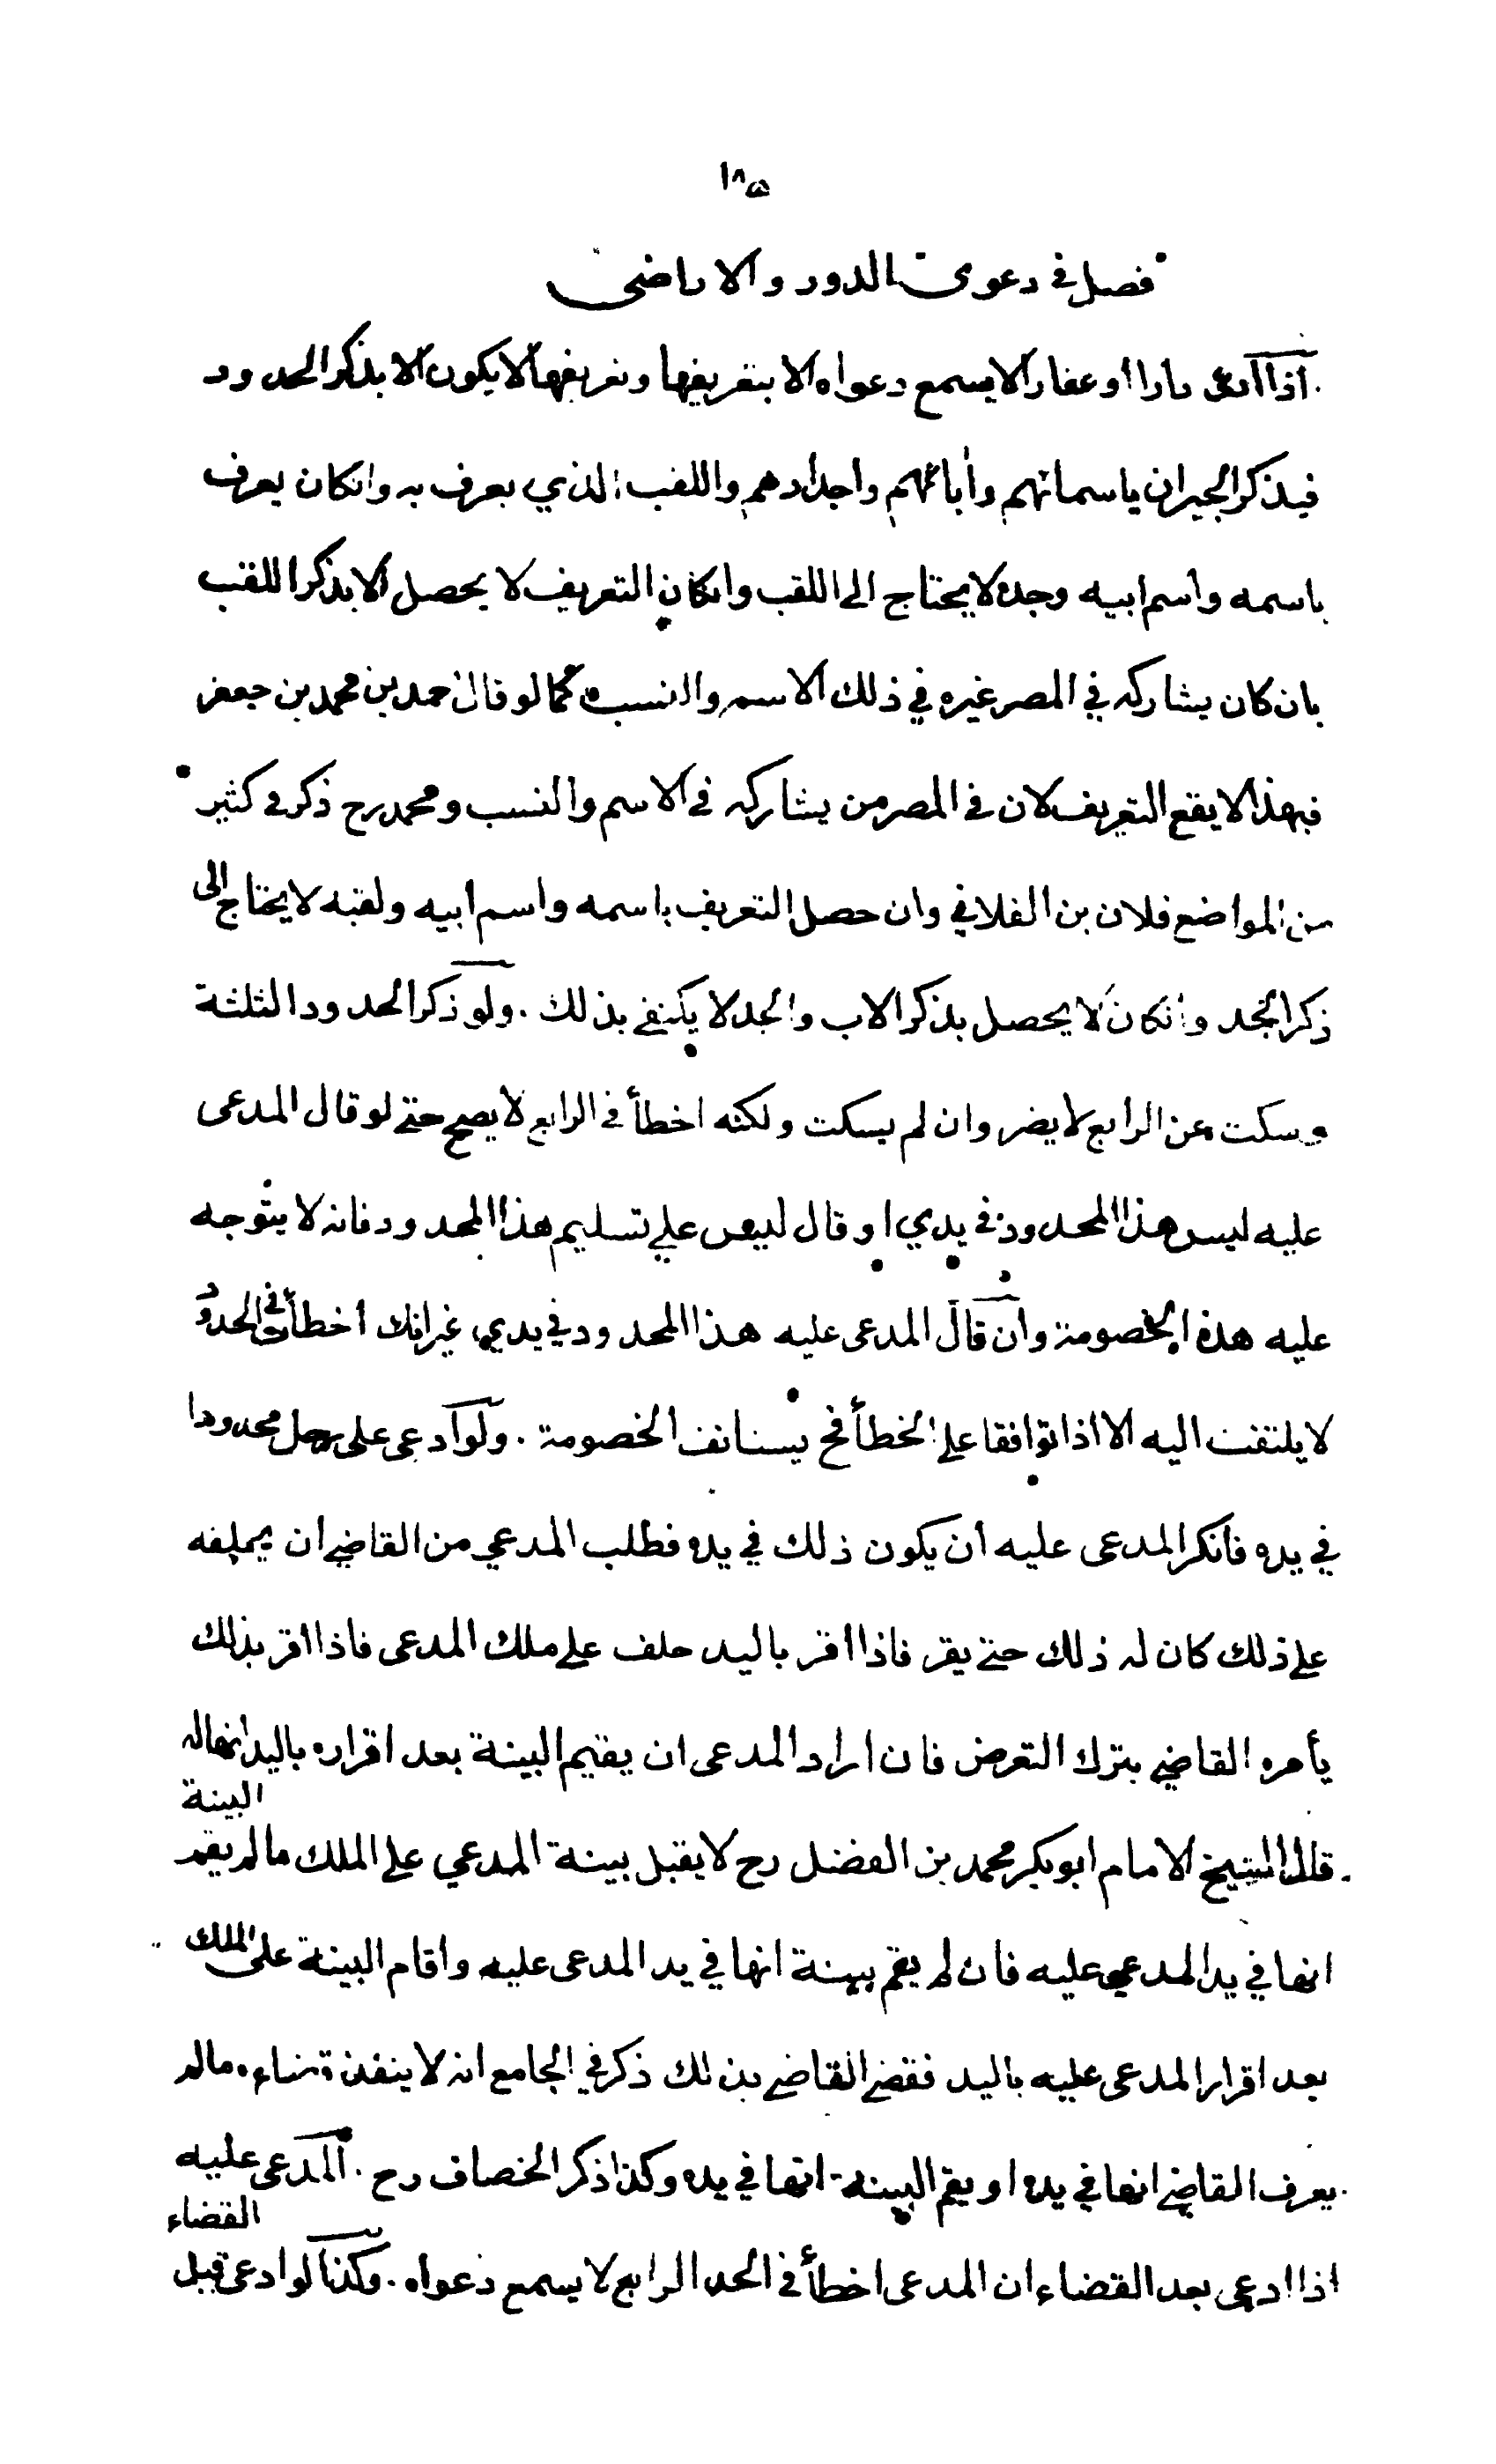 ١٨٥
فصل في دعوى الدور والاراضى
اذا ادعى دارا او عقارا لا يسمع دعواه الا بتعريفها وتعريفها لا يكون الا بذكر الحدود
فيذكر الجيران باسمائهم وأبائهم واجدادهم واللقب الذي يعرف به وانكان يعرف
باسمه واسم ابيه وجده لا يحتاج الى اللقب وانكان التعريف لا يحصل الا بذكر اللقب
بان كان يشاركه في المصر غيره في ذلك الاسم والنسب كما لو قال احمد بن محمد بن جعفر
فبهذا لا يقع التعريف لان في المصر من يشاركه في الاسم والنسب ومحمد رح ذكر في كثير
من المواضع فلان بن الفلاني وان حصل التعريف باسمه واسم ابيه ولقبه لا يحتاج الى
ذكر الجد وانكان لا يحصل بذكر الاب والجد لا يكتفى بذلك . ولو ذكر الحدود الثلثة
وسكت عن الرابع لا يضر وان لم يسكت ولكنه اخطأ في الرابع لا يصح حتى لو قال المدعى
عليه ليس هذا المحدود في يدي او قال ليس علي تسليم هذا المحدود فانه لا يتوجه
عليه هذه الخصومة وان قال المدعى عليه هذا المحدود في يدي غير انك اخطأت في الحدود
لا يلتفت اليه الا اذا توافقا على الخطأ فح يستانف الخصومة . ولو ادعى على رجل محدودا
في يده فانكر المدعى عليه ان يكون ذلك في يده فطلب المدعي من القاضي ان يحلفه
على ذلك كان له ذلك حتى يقر فاذا اقر باليد حلف على ملك المدعى فاذا اقر بذلك
يأمره القاضي بترك التعرض فان اراد المدعى ان يقيم البينة بعد اقراره باليد انها له
قال الشيخ الامام ابو بكر محمد بن الفضل رح لا يقبل بينة المدعي على الملك ما لم يقم البينة
انها في يد المدعي عليه فان لم يقم بينة انها في يد المدعى عليه واقام البينة على الملك
بعد اقرار المدعى عليه باليد فقضى القاضي بذلك ذكر في الجامع انه لا ينفذ قضاءه ما لم
يعرف القاضي انها في يده او يقم البينة انها في يده وكذا ذكر الخصاف رح . المدعى عليه
اذا ادعى بعد القضاء ان المدعى اخطأ في الحد الرابع لا يسمع دعواه . وكذا لو ادعى قبل القضاء